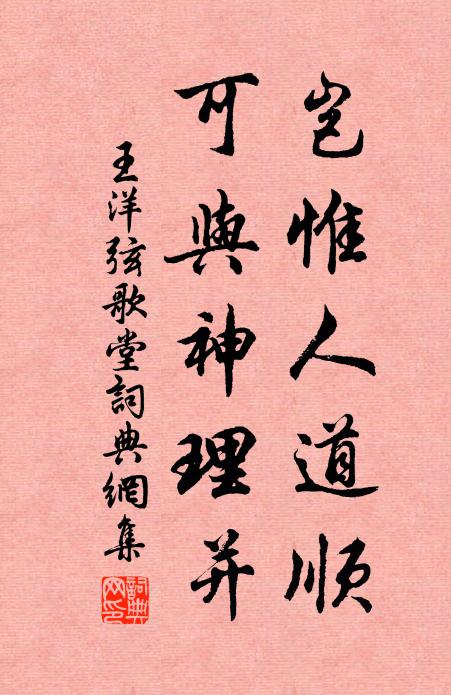 豈惟人道順
可與神理并
王洋弦歌堂詞典網集
詞典網印